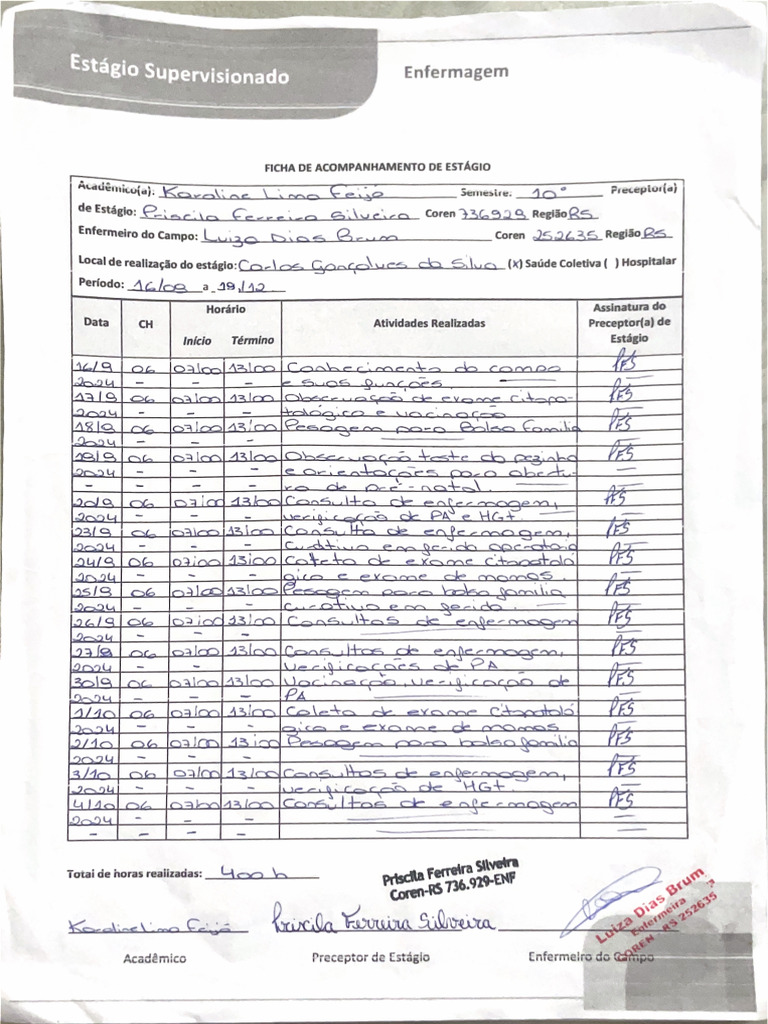 Estágio Supervisionado
Enfermagem
FICHA DE ACOMPANHAMENTO DE ESTÁGIO
Acadêmico(a): Karoline Lima Feijó Semestre: 10° Preceptor(a)
de Estágio: Priscila Ferreira Silveira Coren 736929 Região RS
Enfermeiro do Campo: Luiza Dias Brum Coren 252635 Região RS
Local de realização do estágio: Carlos Gonçalves da Silva (x) Saúde Coletiva ( ) Hospitalar
Período: 16/09 a 19/12
Data CH Horário Início Término Atividades Realizadas Assinatura do Preceptor(a) de Estágio
16/9 06 07:00 13:00 Conhecimento do campo PFS
2024 - - - e suas funções.
17/9 06 07:00 13:00 Observação de exame citopa- PFS
2024 - - - tológico e vacinação
18/9 06 07:00 13:00 Pesagem para Bolsa Família PFS
2024 - - -
19/9 06 07:00 13:00 Observação teste do pezinho PFS
2024 - - - e orientações para abertu-
- - - - ra de pré-natal.
20/9 06 07:00 13:00 Consulta de enfermagem, PFS
2024 - - - verificação de PA e HGT.
23/9 06 07:00 13:00 Consulta de enfermagem, PFS
2024 - - - Curativo em ferida operatória
24/9 06 07:00 13:00 Coleta de exame citopatoló PFS
2024 - - - gico e exame de mamas.
25/9 06 07:00 13:00 Pesagem para bolsa família PFS
2024 - - - curativo em ferida.
26/9 06 07:00 13:00 Consultas de enfermagem PFS
2024 - - -
27/9 06 07:00 13:00 Consultas de enfermagem, PFS
2024 - - - verificações de PA
30/9 06 07:00 13:00 Vacinação, verificação de PFS
2024 - - - PA
1/10 06 07:00 13:00 Coleta de exame citopatoló PFS
2024 - - - gico e exame de mamas
2/10 06 07:00 13:00 Pesagem para bolsa família PFS
2024 - - -
3/10 06 07:00 13:00 Consultas de enfermagem, PFS
2024 - - - verificação de HGT.
4/10 06 07:00 13:00 Consultas de enfermagem PFS
2024 - - -
- - - -
Total de horas realizadas: 400 h
Priscila Ferreira Silveira
Coren-RS 736.929-ENF
Karoline Lima Feijó Priscila Ferreira Silveira
Luiza Dias Brum
Enfermeira
COREN - RS 252635
Acadêmico Preceptor de Estágio Enfermeiro do Campo